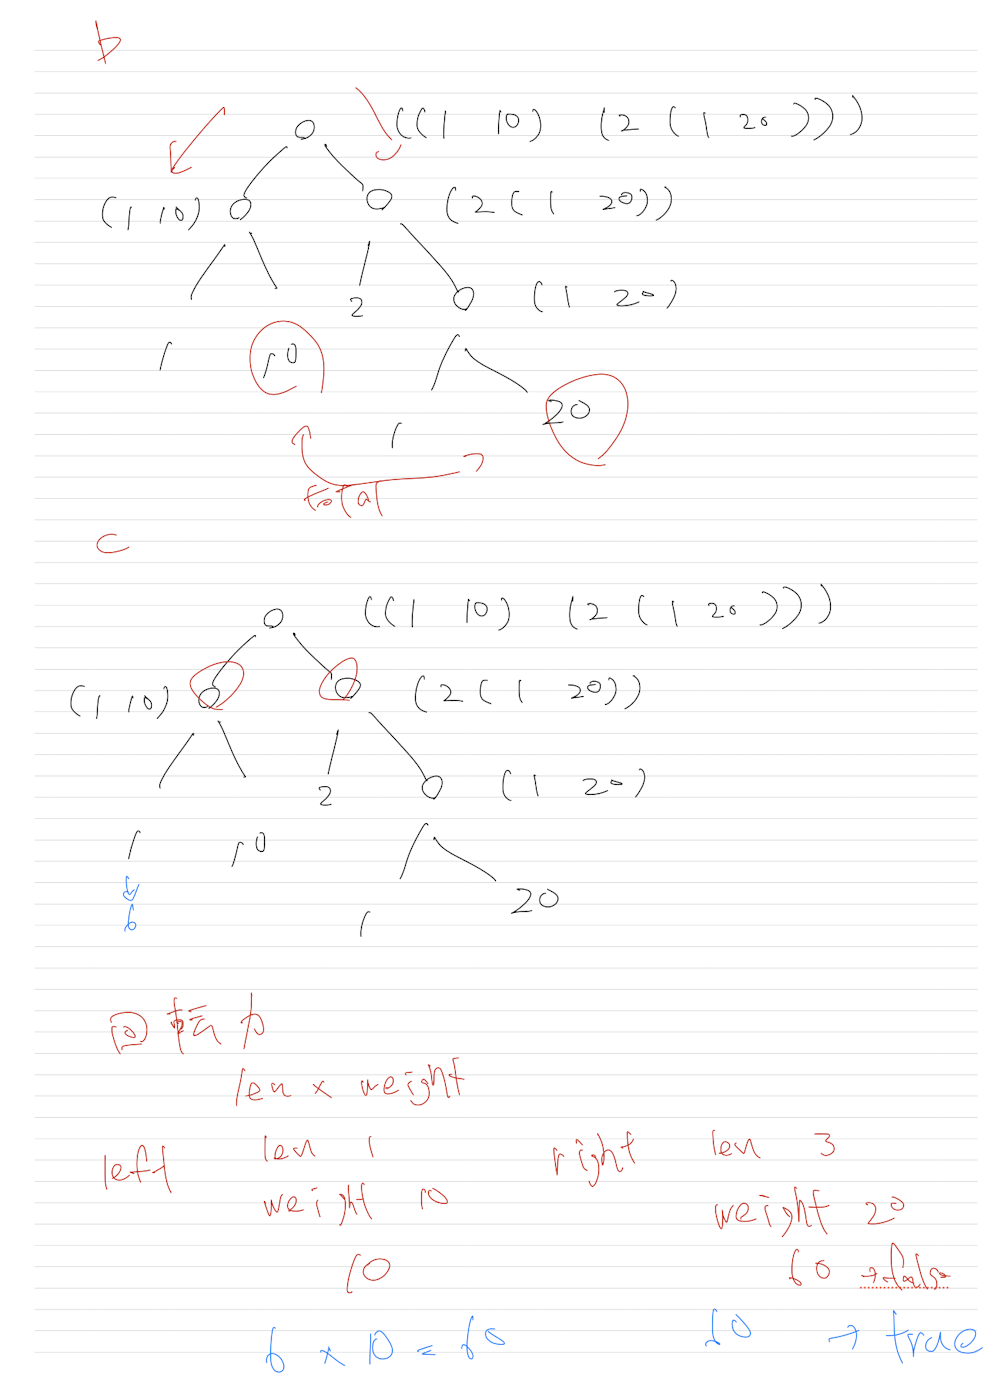 b
((1 10) (2 (1 20)))
(1 10) (2 (1 20))
2 (1 20)
1 10
1 20
total
c
((1 10) (2 (1 20)))
(1 10) (2 (1 20))
2 (1 20)
1 10
6 1 20
回転力
len × weight
left len 1 right len 3
weight 10 weight 20
10 60 →false
6 × 10 = 60 60 → true